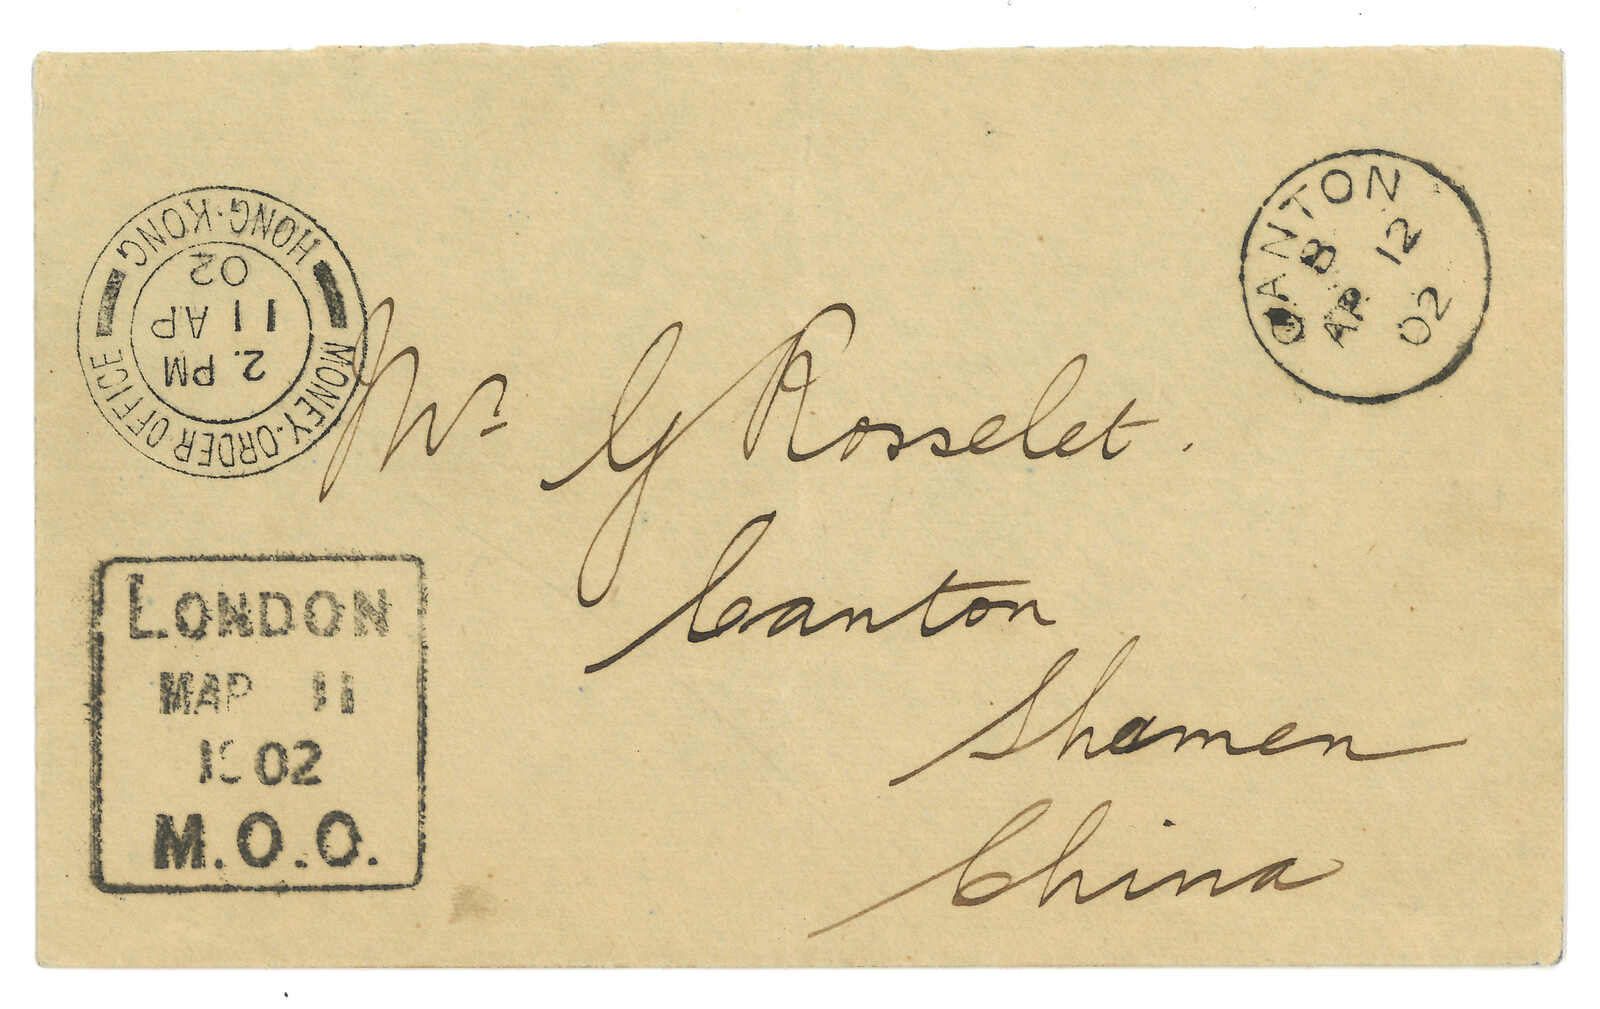 HONG-KONG
MONEY-ORDER OFFICE
2. PM
11 AP
02
CANTON
B
AP 12
02
Mr G Rosselet.
Canton
Shamen
China
LONDON
MAR 11
1902
M.O.O.